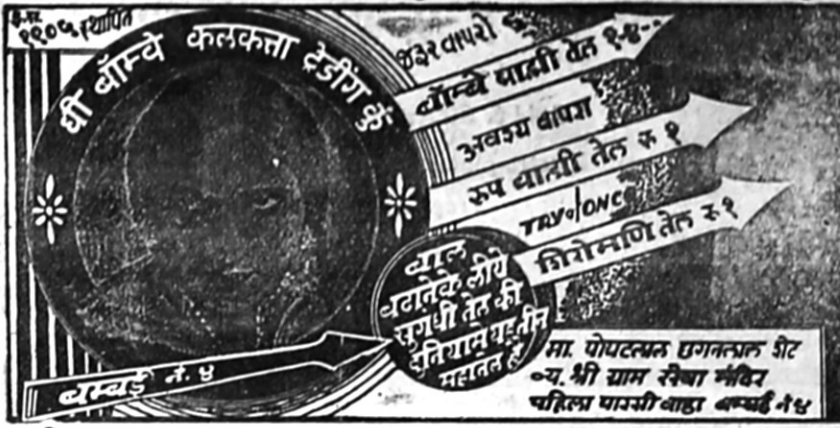 इ.स. १९०६ स्थापित
धी बॉम्बे कलकत्ता ट्रेडींग कुं
જરૂર વાપરો
बॉम्बे ब्राह्मी तेल १-४-०
अवश्य वापरा
रुप ब्राह्मी तेल रु १
TRY ONCE
शिरोमणि तेल रु १
बाल
बढानेके लीये
सुगंधी तेल की
दुनियामे यह तीन
बम्बई नं. ४
मा. पोपटलाल छगनलाल शेट
व्य. श्री ग्राम सेवा मंदिर
पहिला पारसीवाडा बम्बई नं ४